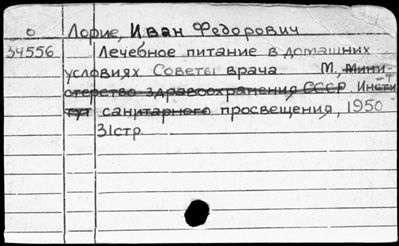 о Лорие, Иван Федорович
34556 Лечебное питание в домашних
условиях. Советы врача. М., Мини-
стерство здравоохранения СССР. Инсти
тут санитарного просвещения, 1950
31стр.